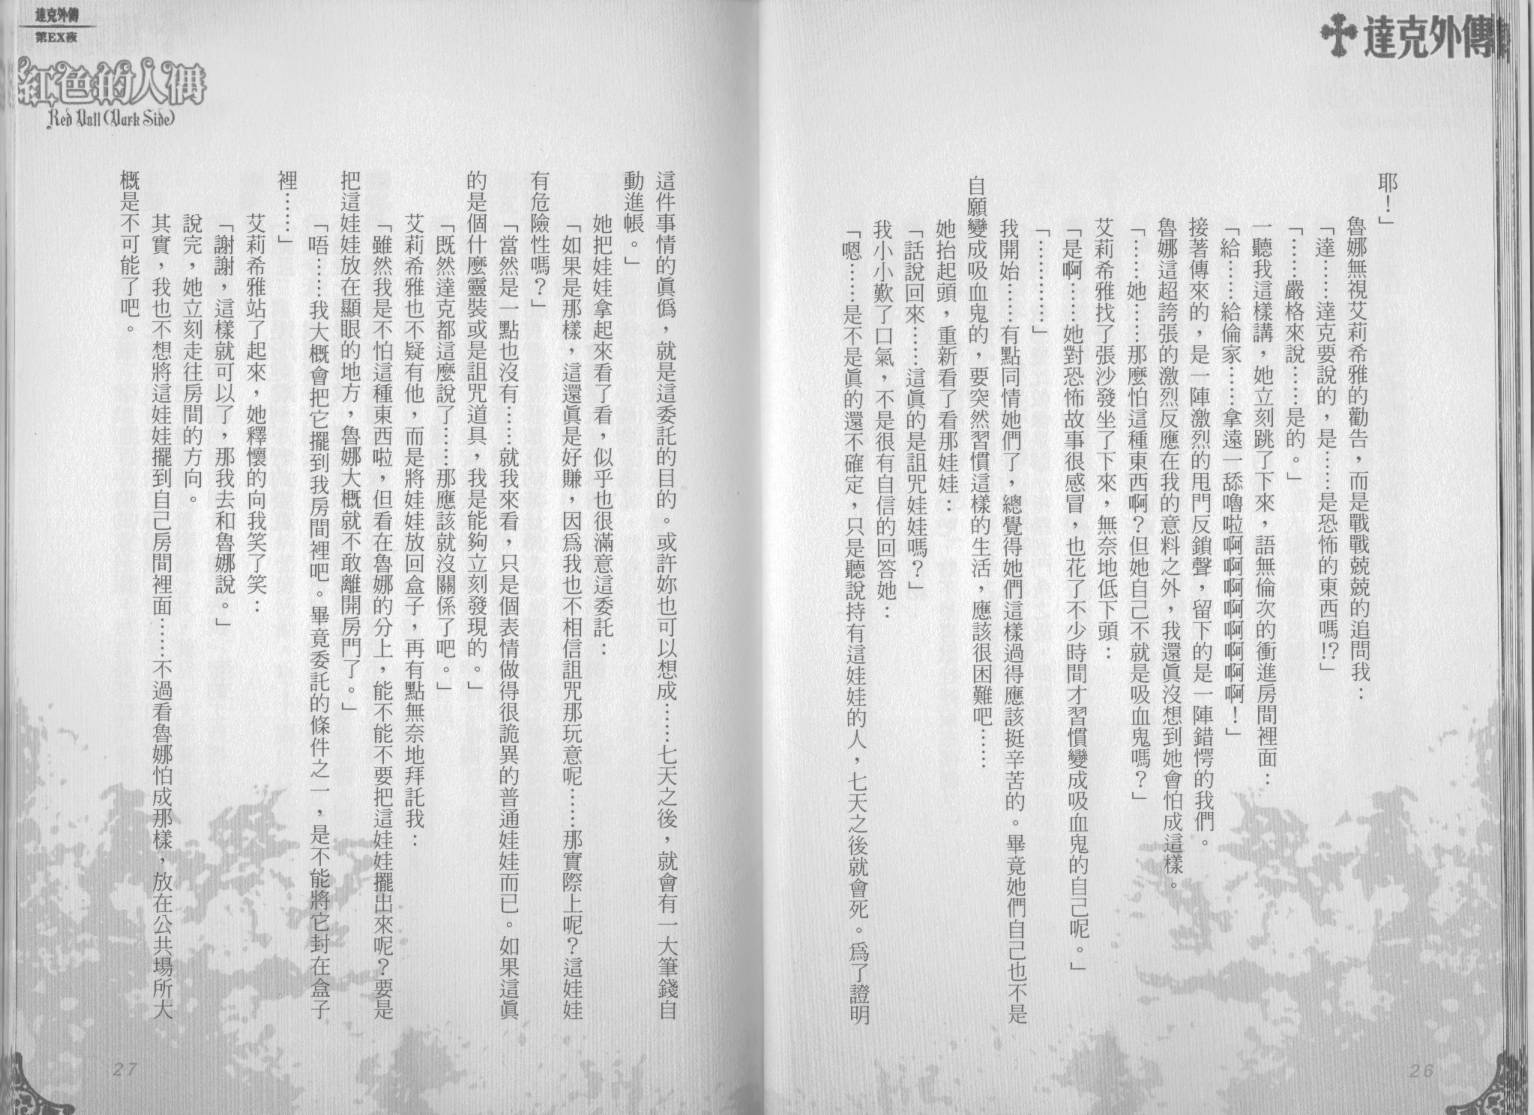 達克外傳
耶！」
魯娜無視艾莉希雅的勸告，而是戰戰兢兢的追問我：
「達……達克要說的，是……是恐怖的東西嗎!?」
「……嚴格來說……是的。」
一聽我這樣講，她立刻跳了下來，語無倫次的衝進房間裡面：
「給……給倫家……拿遠一舔嚕啦啊啊啊啊啊啊啊啊！」
接著傳來的，是一陣激烈的甩門反鎖聲，留下的是一陣錯愕的我們。
魯娜這超誇張的激烈反應在我的意料之外，我還真沒想到她會怕成這樣。
「……她……那麼怕這種東西啊？但她自己不就是吸血鬼嗎？」
艾莉希雅找了張沙發坐了下來，無奈地低下頭：
「是啊……她對恐怖故事很感冒，也花了不少時間才習慣變成吸血鬼的自己呢。」
「…………」
我開始……有點同情她們了，總覺得她們這樣過得應該挺辛苦的。畢竟她們自己也不是
自願變成吸血鬼的，要突然習慣這樣的生活，應該很困難吧……
她抬起頭，重新看了看那娃娃：
「話說回來……這真的是詛咒娃娃嗎？」
我小小歎了口氣，不是很有自信的回答她：
「嗯……是不是真的還不確定，只是聽說持有這娃娃的人，七天之後就會死。爲了證明
26
達克外傳
第EX夜
紅色的人偶
Red Doll (Dark Side)
這件事情的真偽，就是這委託的目的。或許妳也可以想成……七天之後，就會有一大筆錢自
動進帳。」
她把娃娃拿起來看了看，似乎也很滿意這委託：
「如果是那樣，這還真是好賺，因爲我也不相信詛咒那玩意呢……那實際上呢？這娃娃
有危險性嗎？」
「當然是一點也沒有……就我來看，只是個表情做得很詭異的普通娃娃而已。如果這真
的是個什麼靈裝或是詛咒道具，我是能夠立刻發現的。」
「既然達克都這麼說了……那應該就沒關係了吧。」
艾莉希雅也不疑有他，而是將娃娃放回盒子，再有點無奈地拜託我：
「雖然我是不怕這種東西啦，但看在魯娜的分上，能不能不要把這娃娃擺出來呢？要是
把這娃娃放在顯眼的地方，魯娜大概就不敢離開房門了。」
「唔……我大概會把它擺到我房間裡吧。畢竟委託的條件之一，是不能將它封在盒子
裡……」
艾莉希雅站了起來，她釋懷的向我笑了笑：
「謝謝，這樣就可以了，那我去和魯娜說。」
說完，她立刻走往房間的方向。
其實，我也不想將這娃娃擺到自己房間裡面……不過看魯娜怕成那樣，放在公共場所大
概是不可能了吧。
27